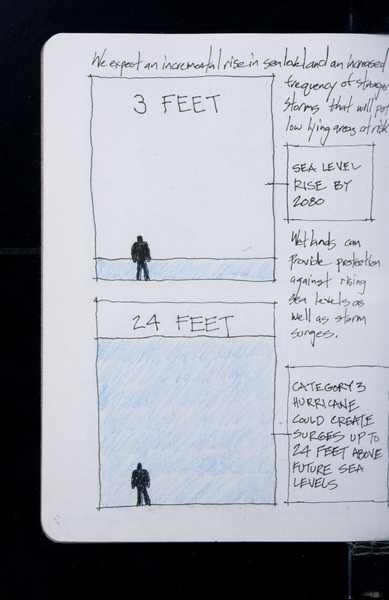 We expect an incremental rise in sea level and an increased
frequency of stronger
storms that will put
low lying areas at risk
3 FEET
SEA LEVEL
RISE BY
2080
Wetlands can
provide protection
against rising
sea levels as
well as storm
surges.
24 FEET
CATEGORY 3
HURRICANE
COULD CREATE
SURGES UP TO
24 FEET ABOVE
FUTURE SEA
LEVELS